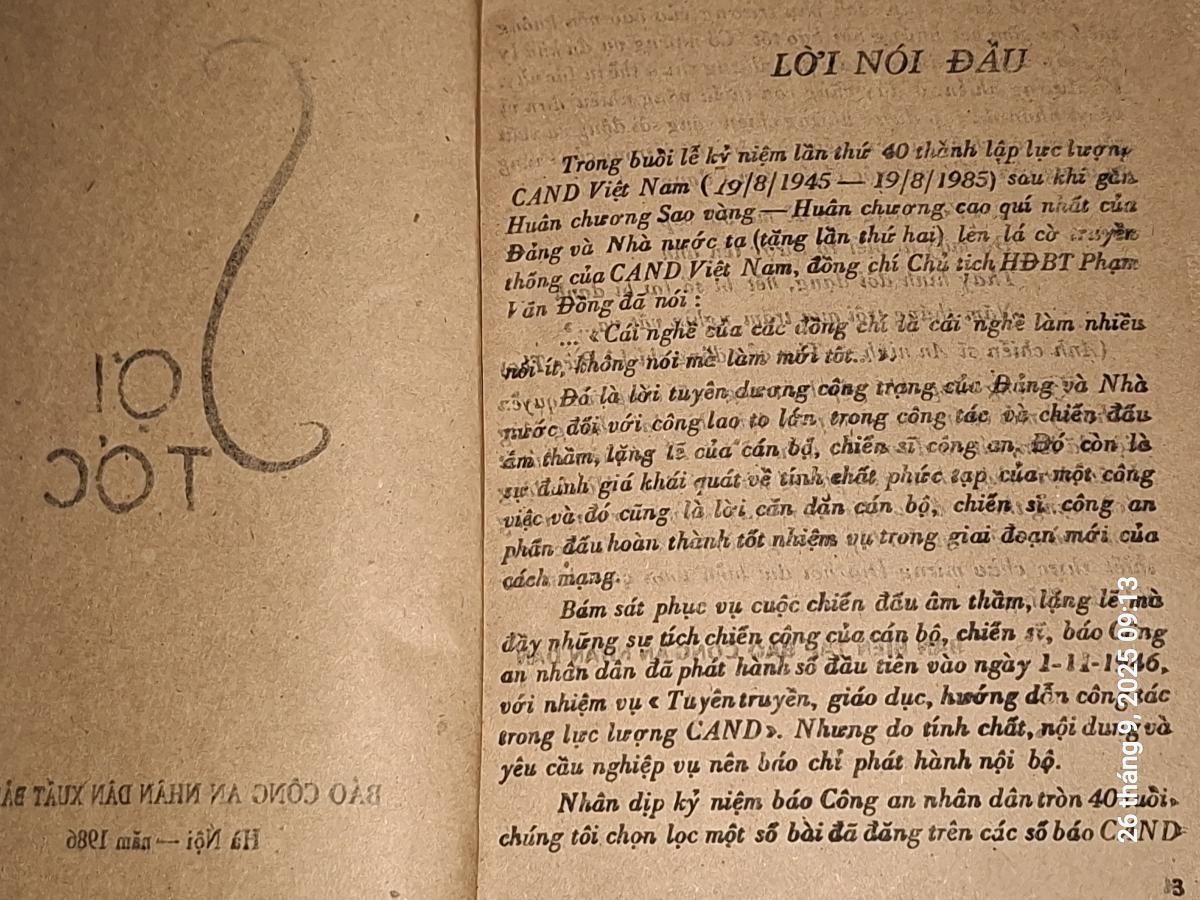 LỜI NÓI ĐẦU
Trong buổi lễ kỷ niệm lần thứ 40 thành lập lực lượng
CAND Việt Nam (19/8/1945 — 19/8/1985) sau khi gắn
Huân chương Sao vàng — Huân chương cao quí nhất của
Đảng và Nhà nước ta (tặng lần thứ hai) lên lá cờ truyền
thống của CAND Việt Nam, đồng chí Chủ tịch HĐBT Phạm
Văn Đồng đã nói :
... «Cái nghề của các đồng chí là cái nghề làm nhiều
nói ít, không nói mà làm mới tốt...»
Đó là lời tuyên dương công trạng của Đảng và Nhà
nước đối với công lao to lớn trong công tác và chiến đấu
âm thầm, lặng lẽ của cán bộ, chiến sĩ công an. Đó còn là
sự đánh giá khái quát về tính chất phức tạp của một công
việc và đó cũng là lời căn dặn cán bộ, chiến sĩ công an
phấn đấu hoàn thành tốt nhiệm vụ trong giai đoạn mới của
cách mạng.
Bám sát phục vụ cuộc chiến đấu âm thầm, lặng lẽ mà
đầy những sự tích chiến công của cán bộ, chiến sĩ, báo Công
an nhân dân đã phát hành số đầu tiên vào ngày 1-11-1946,
với nhiệm vụ « Tuyên truyền, giáo dục, hướng dẫn công tác
trong lực lượng CAND». Nhưng do tính chất, nội dung và
yêu cầu nghiệp vụ nên báo chỉ phát hành nội bộ.
Nhân dịp kỷ niệm báo Công an nhân dân tròn 40 tuổi,
chúng tôi chọn lọc một số bài đã đăng trên các số báo CAND
3
LỘI
TỘC
BÁO CÔNG AN NHÂN DÂN XUẤT BẢN
Hà Nội — năm 1986
26 tháng 9, 2025 09:13